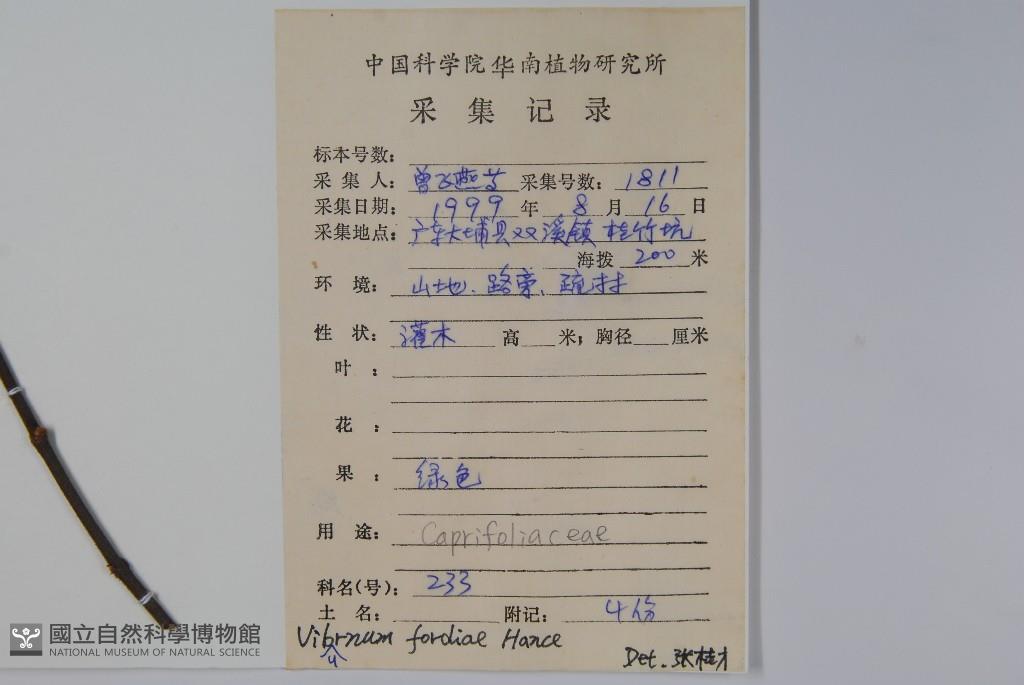 中国科学院华南植物研究所
采集记录
标本号数：
采集人：曾飞燕等 采集号数：1811
采集日期：1999年8月16日
采集地点：广东大埔县双溪镇桂竹坑
海拨200米
环境：山地、路旁、疏林
性状：灌木 高 米；胸径 厘米
叶：
花：
果：绿色
用途：Caprifoliaceae
科名(号)：233
土名： 附记：4份
Vibrnum fordiae Hance
u
Det. 张桂才
國立自然科學博物館
NATIONAL MUSEUM OF NATURAL SCIENCE